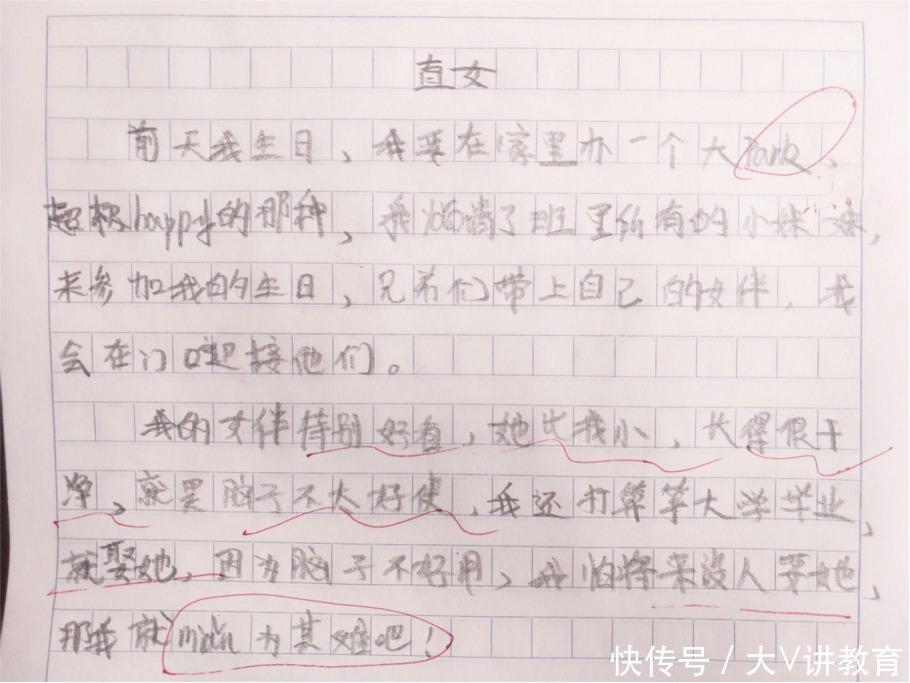 直女
前天我生日、我要在家里办一个大Park、
超极happy的那种、我邀请了班里所有的小妹妹,
来参加我的生日、兄弟们带上自己的女伴、我
会在门口迎接他们。
我的女伴特别好看,她比我小、长得很干
净、就是脑子不太好使、我还打算等大学毕业、
就娶她、因为脑子不好用、我怕将来没人要她、
那我就 为其难吧!
快传号 / 大V讲教育